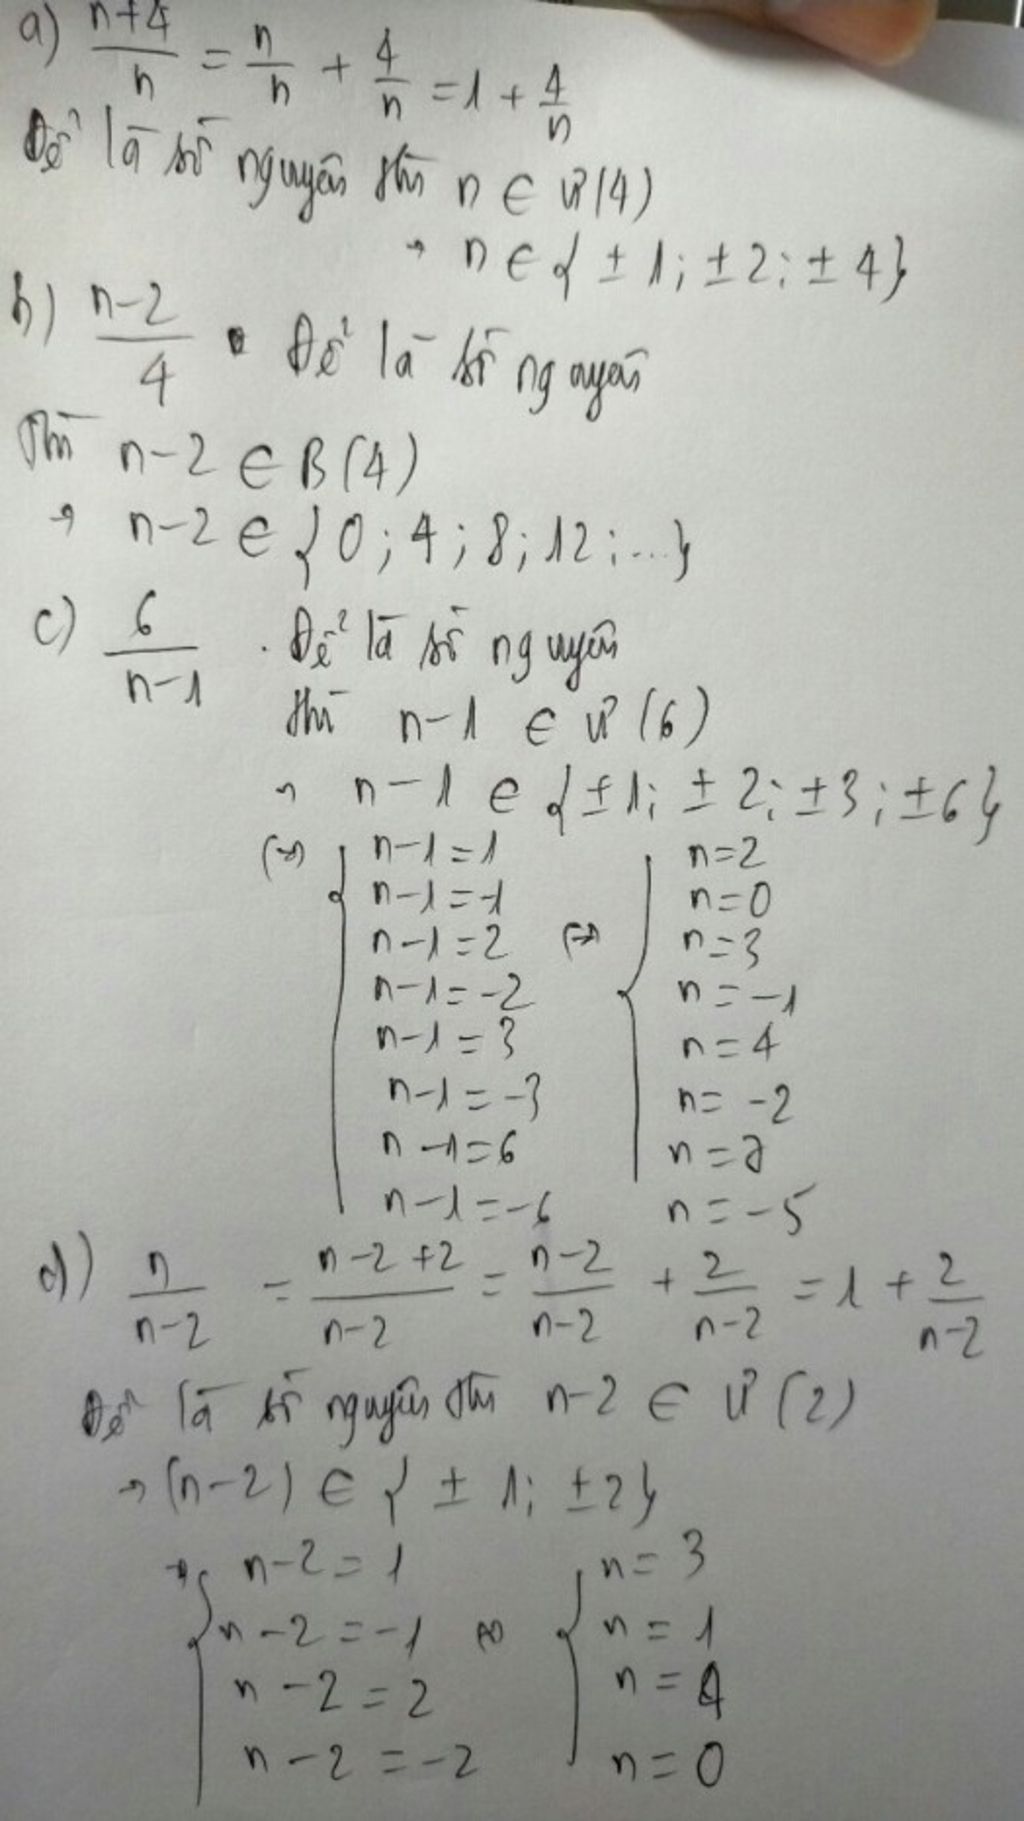 a) n+4/n = n/n + 4/n = 1 + 4/n
Để là số nguyên thì n ∈ Ư(4)
→ n ∈ { ±1; ±2; ±4}
b) n-2/4 . Để là số nguyên
thì n-2 ∈ B(4)
→ n-2 ∈ {0; 4; 8; 12; ...}
c) 6/n-1 . Để là số nguyên
thì n-1 ∈ Ư(6)
→ n-1 ∈ {±1; ±2; ±3; ±6}
(→) { n-1=1 n=2
n-1=-1 n=0
n-1=2 (→) { n=3
n-1=-2 n=-1
n-1=3 n=4
n-1=-3 n=-2
n-1=6 n=7
n-1=-6 n=-5
d) n/n-2 = n-2+2/n-2 = n-2/n-2 + 2/n-2 = 1 + 2/n-2
Để là số nguyên thì n-2 ∈ Ư(2)
→ (n-2) ∈ { ±1; ±2}
→ { n-2=1 { n=3
n-2=-1 (→) n=1
n-2=2 n=4
n-2=-2 n=0